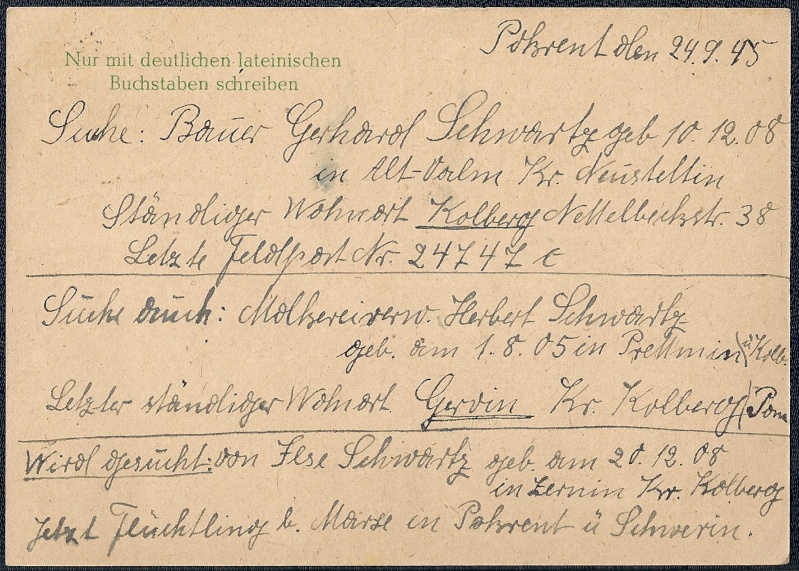 Nur mit deutlichen lateinischen
Buchstaben schreiben
Pokrent den 24.9.45
Suche: Bauer Gerhard Schwartz geb 10.12.08
in Alt-Valm Kr. Neustettin
Ständiger Wohnort Kolberg Nettelbeckstr. 38
Letzte Feldpost Nr. 24747 c
Suche auch: Molkereiverw. Herbert Schwartz
geb. am 1.8.05 in Prettmin ü Kolb.
Letzter ständiger Wohnort Gervin Kr. Kolberg Pom
Wird gesucht: von Ilse Schwartz geb. am 20.12.08
in Zernin Kr. Kolberg
Jetzt Flüchtling b. in Pokrent ü Schwerin.